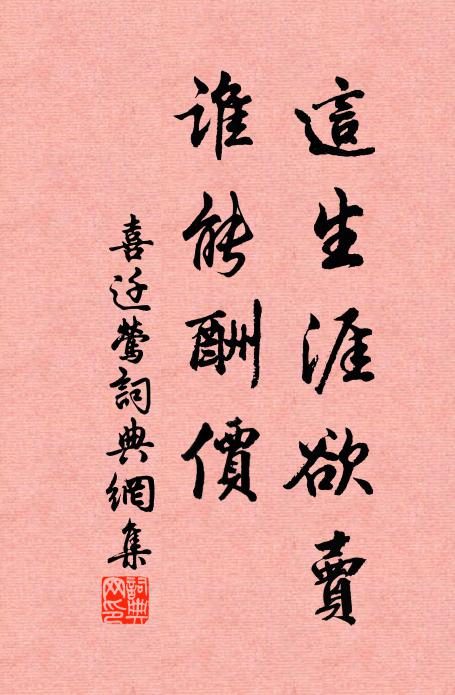 這生涯欲賣
誰能酬價
喜迁鶯詞典網集
詞典网印